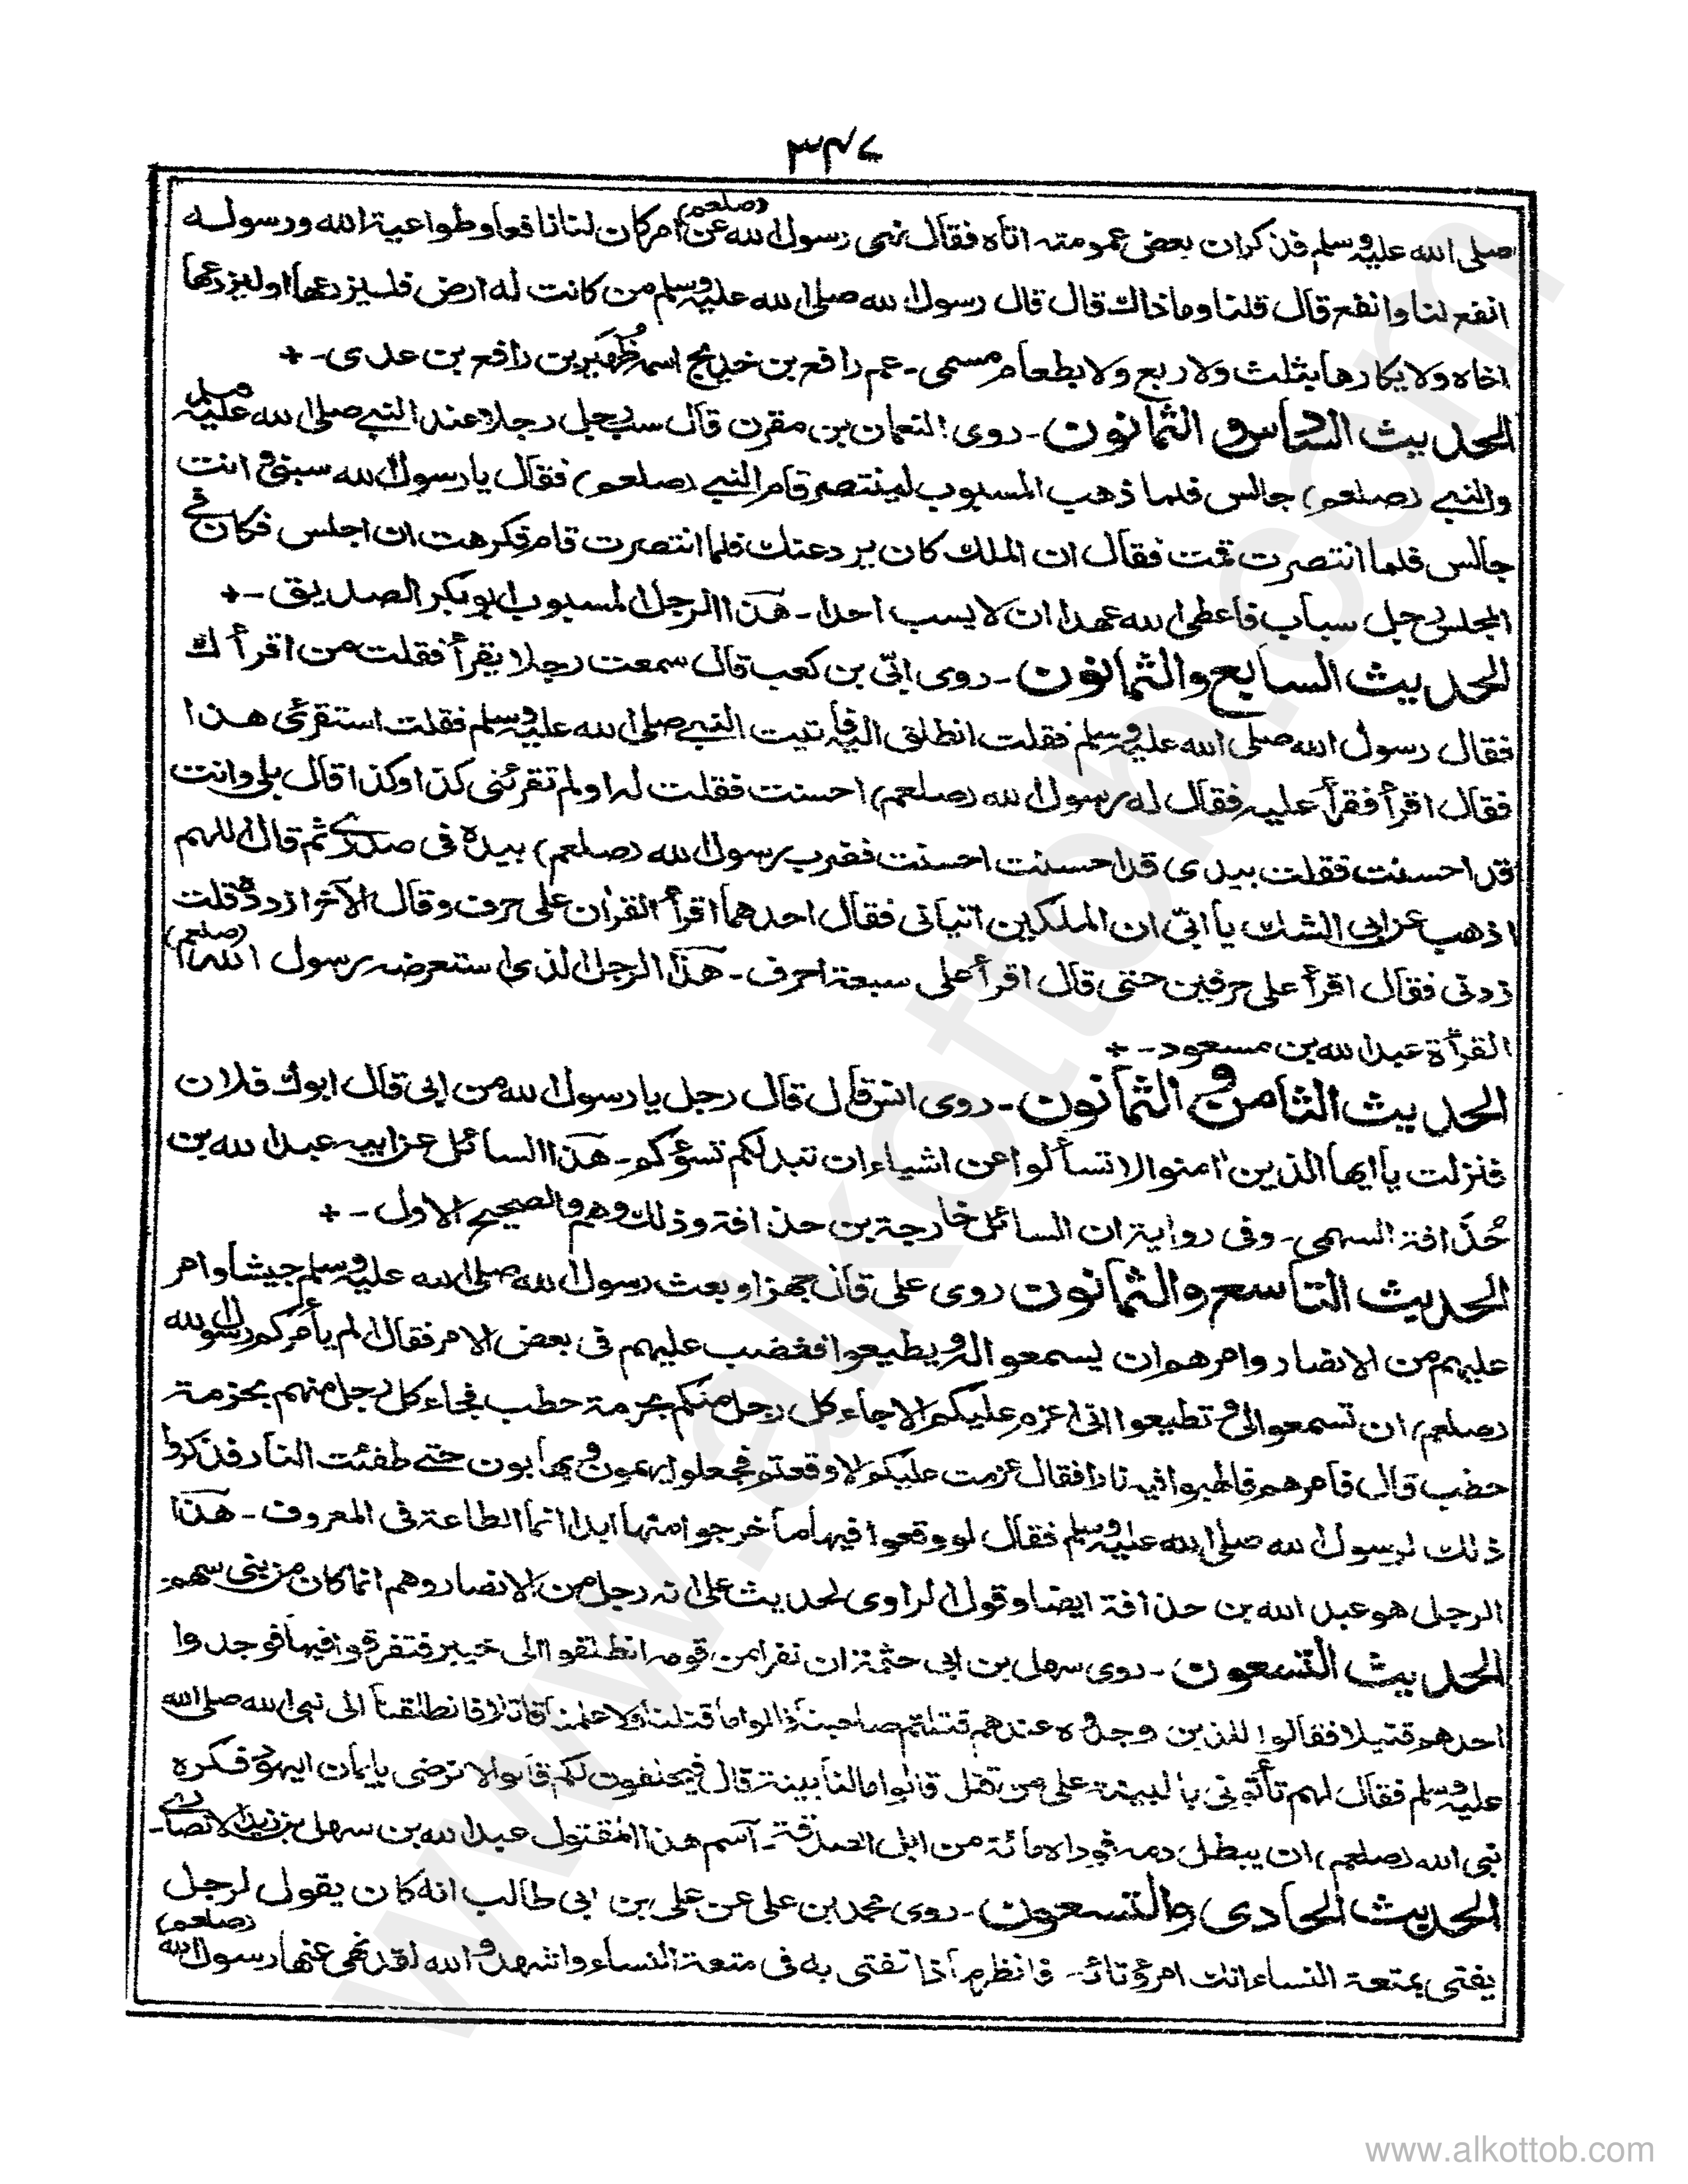 ٣٤٧
صلى الله عليه وسلم فذكر ان بعض عمومته اتاه فقال نهى رسول الله (صلعم) عن امر كان لنا نافعا وطواعية الله ورسوله
انفع لنا وانفع قال قلنا وما ذاك قال قال رسول الله صلى الله عليه وسلم من كانت له ارض فليزرعها او ليزرعها
اخاه ولا يكارها بثلث ولا ربع ولا بطعام مسمى - عم رافع بن خديج اسمه ظُهَير بن رافع بن عدى - +
الحديث السادس والثمانون - روى النعمان بن مقرن قال سب رجل رجلا عند النبي صلى الله عليه وسلم
والنبي (صلعم) جالس فلما ذهب المسبوب لينتصر قام النبي (صلعم) فقال يا رسول الله سبنى وانت
جالس فلما انتصرت قمت فقال ان الملك كان يرد عنك فلما انتصرت قام فكرهت ان اجلس فكان في
المجلس رجل سباب فاعطى الله عهدا ان لا يسب احدا - هذا الرجل المسبوب ابو بكر الصديق - +
الحديث السابع والثمانون - روى ابّى بن كعب قال سمعت رجلا يقرأ فقلت من اقرأك
فقال رسول الله صلى الله عليه وسلم فقلت انطلق اليه فأتيت النبي صلى الله عليه وسلم فقلت استقرئ هذا
فقال اقرأ فقرأ عليه فقال له رسول الله (صلعم) احسنت فقلت له اولم تقرئنى كذا وكذا قال بلى وانت
قد احسنت فقلت بيدى قد احسنت احسنت فضرب رسول الله (صلعم) بيده فى صدرى ثم قال اللهم
اذهب عن ابى الشك يا ابّى ان الملكين اتيانى فقال احدهما اقرأ القرآن على حرف وقال الآخر زده قلت
زدنى فقال اقرأ على حرفين حتى قال اقرأ على سبعة احرف - هذا الرجل الذى استعرضه رسول الله (صلعم)
القرأة عبد الله بن مسعود - +
الحديث الثامن والثمانون - روى انس قال قال رجل يا رسول الله من ابى قال ابوك فلان
فنزلت يا ايها الذين امنوا لا تسألوا عن اشياء ان تبد لكم تسؤكم - هذا السائل عن ابيه عبد الله بن
حُذافة السهمى - وفى رواية ان السائل خارجة بن حذافة وذلك وهم والصحيح الاول - +
الحديث التاسع والثمانون روى على قال جهز او بعث رسول الله صلى الله عليه وسلم جيشا وامر
عليهم من الانصار وامرهم ان يسمعوا له ويطيعوا فغضب عليهم فى بعض الامر فقال الم يأمركم رسول الله
(صلعم) ان تسمعوا لى وتطيعوا انى اعزم عليكم الا جاء كل رجل منكم بحزمة حطب فجاء كل رجل منهم بحزمة
حضب قال فأمرهم فالهبوا فيه نارا فقال عزمت عليكم لا وقعتم فجعلوا يهمون ويهابون حتى طفئت النار فذكروا
ذلك لرسول الله صلى الله عليه وسلم فقال لو وقعوا فيها ما خرجوا منها ابدا انما الطاعة فى المعروف - هذا
الرجل هو عبد الله بن حذافة ايضا وقول الراوى لحديث على انه رجل من الانصار وهم انما كان من بنى سهم -
الحديث التسعون - روى سهل بن ابى حثمة ان نفرا من قومه انطلقوا الى خيبر فتفرقوا فيها فوجدوا
احدهم قتيلا فقالوا للذين وجدوه عندهم قتلتم صاحبنا قالوا ما قتلنا ولا علمنا قاتلا فانطلقنا الى نبى الله صلى الله
عليه وسلم فقال لهم تأتونى بالبينة على من قتل قالوا ما لنا بينة قال فيحلفون لكم قالوا لا نرضى بايمان اليهود فكره
نبى الله (صلعم) ان يبطل دمه فوداه مائة من ابل الصدقة - اسم هذا المقتول عبد الله بن سهل بن زيد الانصارى -
الحديث الحادى والتسعون - روى محمد بن على عن على بن ابى طالب انه كان يقول لرجل
يفتى بمتعة النساء انك امرؤ تائه فانظر ماذا تفتى به فى متعة النساء واشهد والله لقد نهى عنها رسول الله (صلعم)
www.alkottob.com
www.alkottob.com